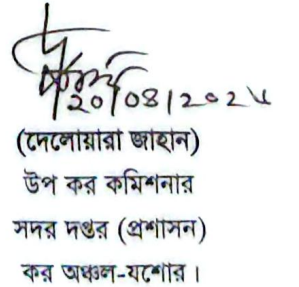 20/08/2024
(দেলোয়ারা জাহান)
উপ কর কমিশনার
সদর দপ্তর (প্রশাসন)
কর অঞ্চল-যশোর।